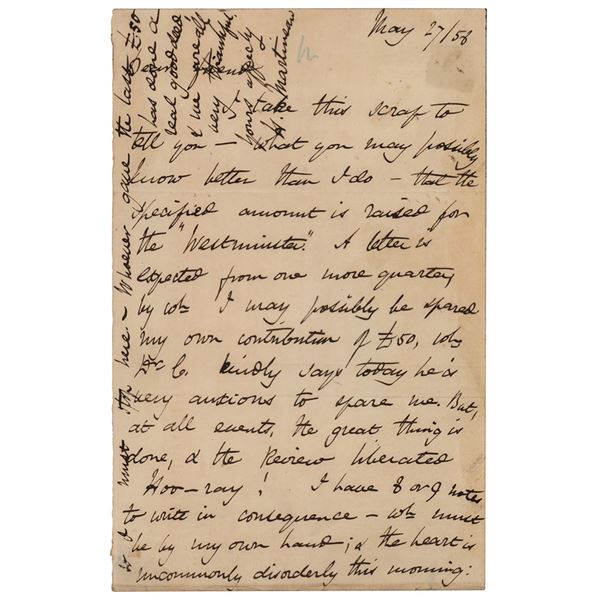 May 27/58
Dear Friend
I take this scrap to
tell you – what you may possibly
know better than I do – that the
specified amount is raised for
the "Westminster." A letter is
expected from one more quarter,
by wh I may possibly be spared
my own contribution of £50, wh
Dr C. kindly says today he is
very anxious to spare me. But,
at all events, the great thing is
done, & the Review liberated
Hoo-ray! I have 8 or 9 notes
to write in consequence – wh must
be by my own hand; & the heart is
uncommonly disorderly this morning:
so I must stop here. – Whoever gave the last £50
has done a
real good deed
& we are all
very thankful
Yours affecly
H. Martineau